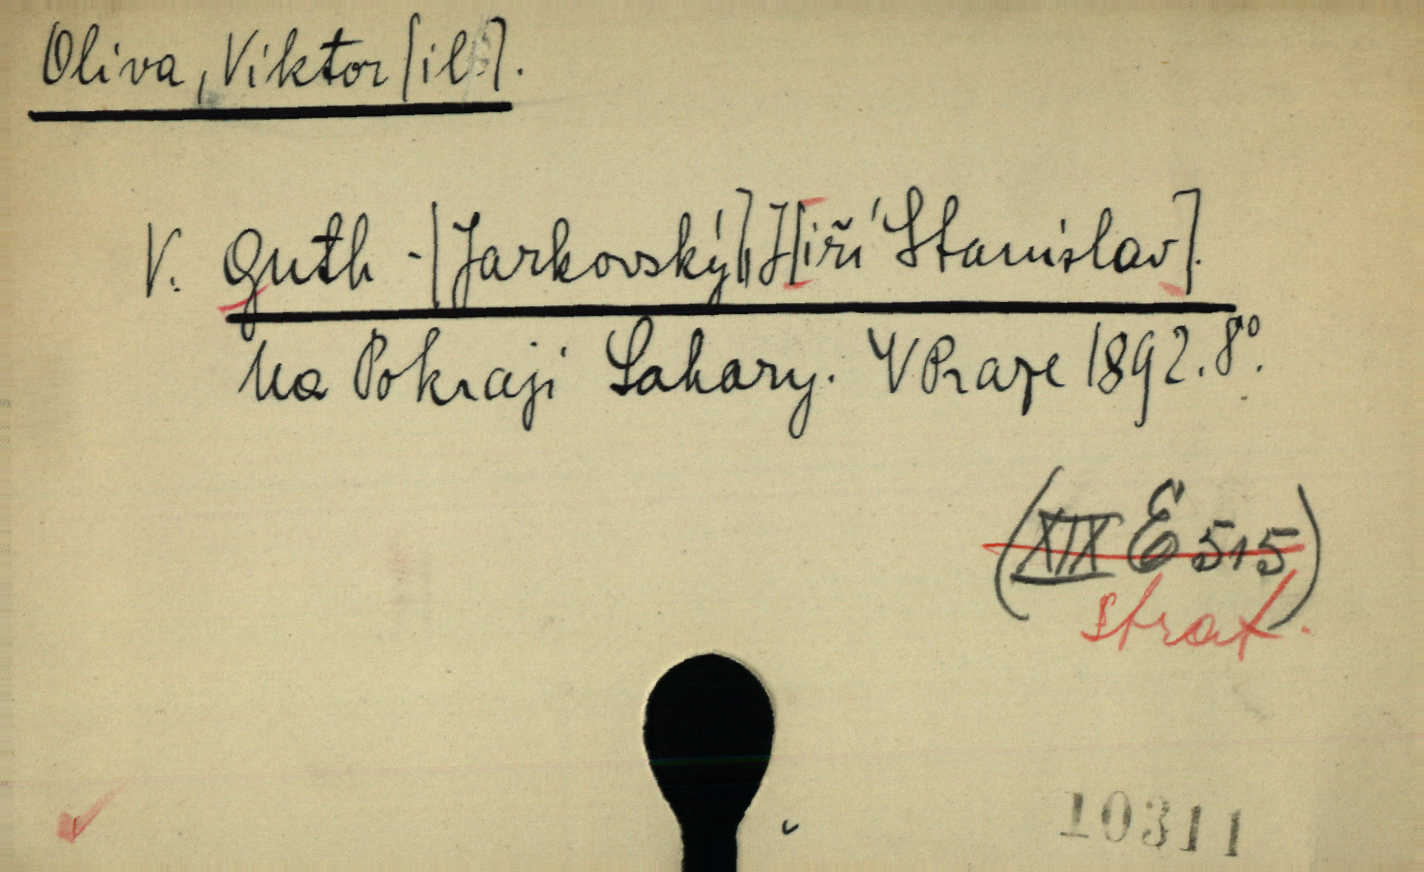 Oliva, Viktor [il.].
V. Guth-[Jarkovský], J[iří Stanislav].
Na Pokraji Sahary. V Praze 1892. 8°.
(XIX E 515)
strat.
10311